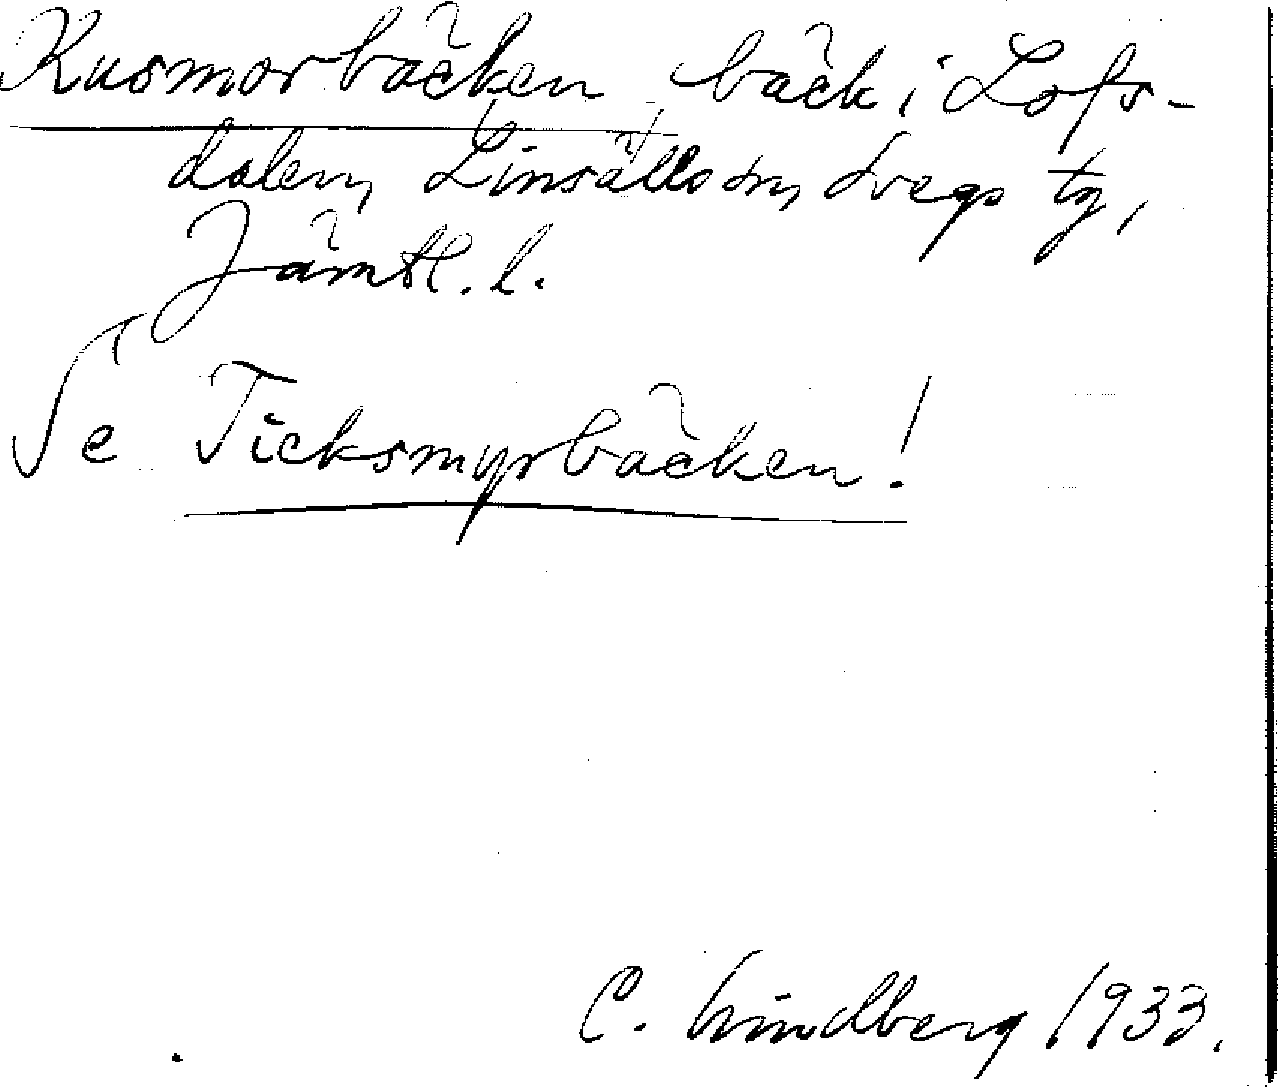 Kusmorbäcken, bäck i Lofs-
dalen, Linsälls sn, Svegs tg,
Jämtl. l.
Se Ticksmyrbäcken!
C. Lindberg 1933.